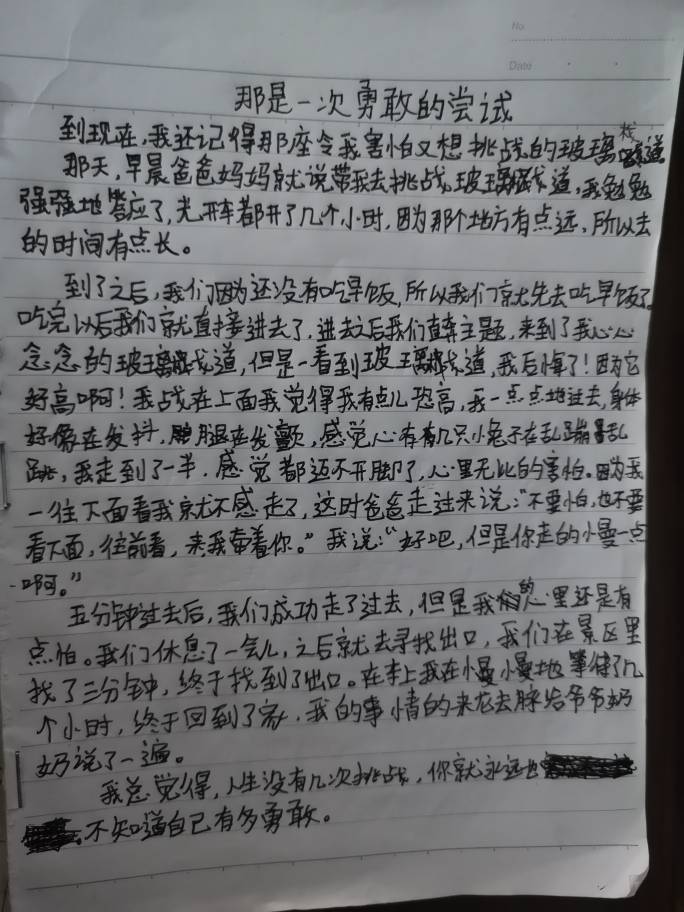 No.
Date
那是一次勇敢的尝试
到现在,我还记得那座令我害怕又想挑战的玻璃栈道
那天,早晨爸爸妈妈就说带我去挑战玻璃栈道,我勉勉
强强地答应了,光开车都开了几个小时,因为那个地方有点远,所以去
的时间有点长。
到了之后,我们因为还没有吃早饭,所以我们就先去吃早饭了。
吃完以后我们就直接进去了,进去之后我们直奔主题,来到了我心心
念念的玻璃栈道,但是一看到玻璃栈道,我后悔了!因为它
好高啊!我战在上面我觉得我有点儿恐高,我一点点地过去,身体
好像在发抖,腿在发颤,感觉心有有几只小兔子在乱蹦乱
跳,我走到了一半.感觉都迈不开脚了,心里无比的害怕。因为我
一往下面看我就不感走了,这时爸爸走过来说:“不要怕,也不要
看下面,往前看,来我牵着你。”我说:“好吧,但是你走的小慢一点
啊。”
五分钟过去后,我们成功走了过去,但是我的心里还是有
点怕。我们休息了一会儿,之后就去寻找出口,我们在景区里
找了三分钟,终于找到了出口。在车上我在慢慢地等待了几
个小时,终于回到了家,我的事情的来龙去脉给爷爷奶
奶说了一遍。
我总觉得,人生没有几次挑战,你就永远也
不知道自己有多勇敢。